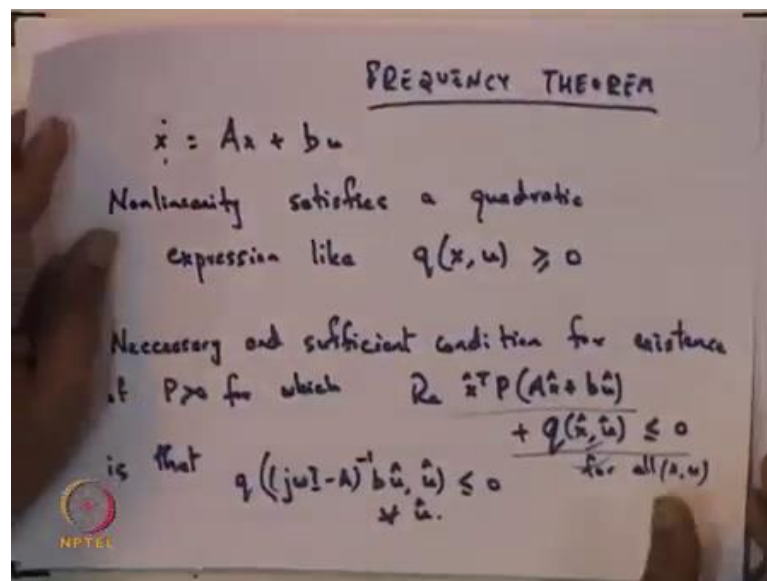 FREQUENCY THEOREM
ẋ = Ax + bu
Nonlinearity satisfies a quadratic
expression like q(x, u) ≥ 0
Neccessary and sufficient condition for existence
of P>0 for which Re x̂ᵀP(Ax̂ + bû)
+ q(x̂, û) ≤ 0
for all (x, u)
is that q((jωI - A)⁻¹bû, û) ≤ 0
∀ û.
NPTEL